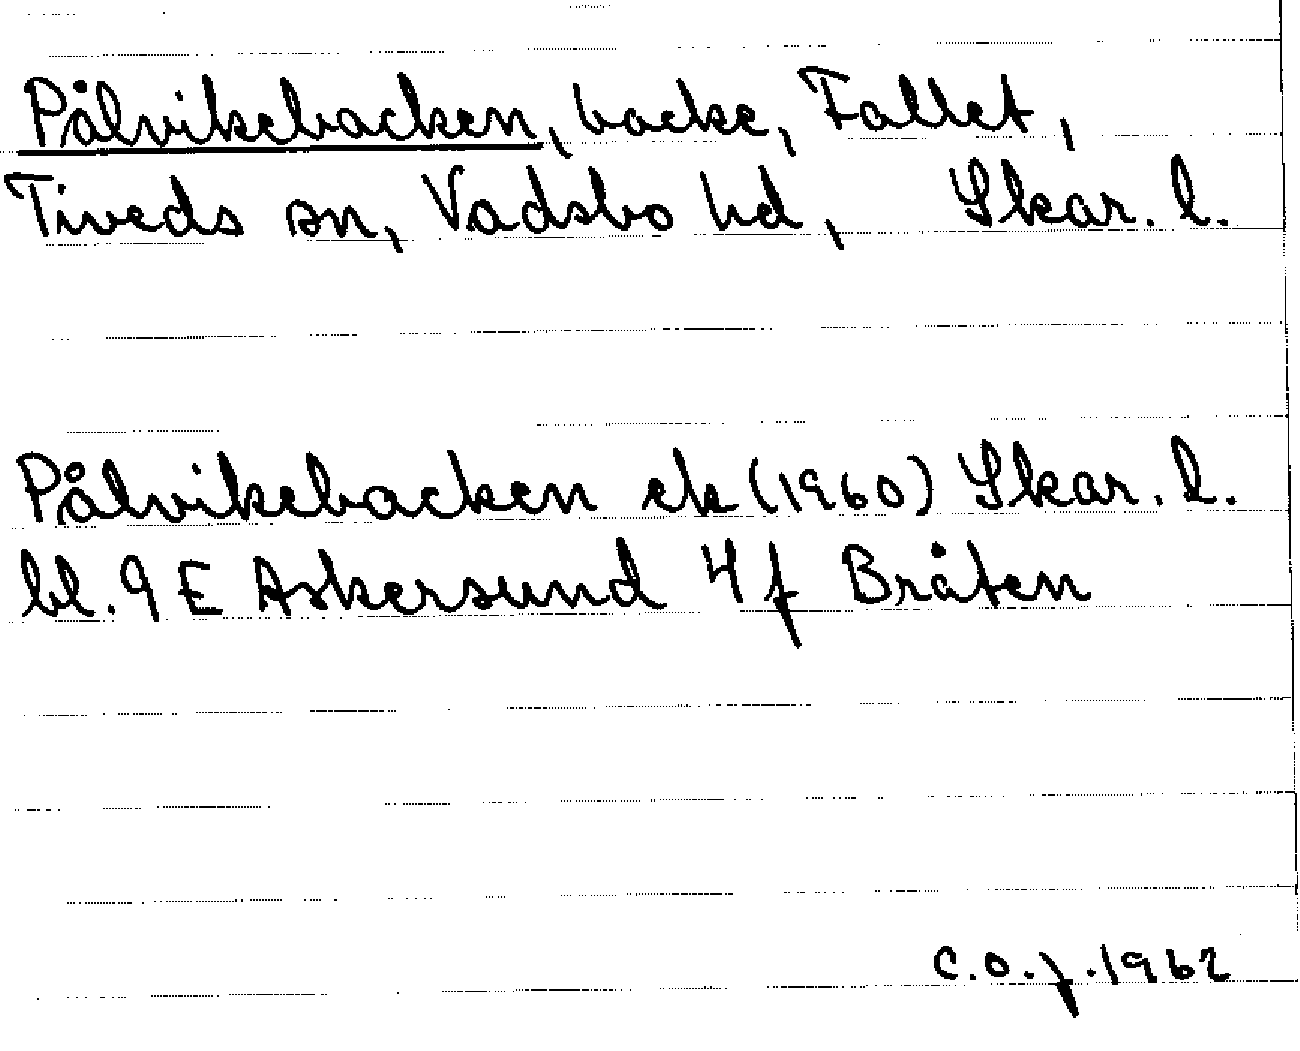 Pålvikebacken, backe, Fallet,
Tiveds sn, Vadsbo hd, Skar. l.
Pålvikebacken ek (1960) Skar. l.
bl. 9 E Askersund 4 f Bråten
C.O.f. 1962